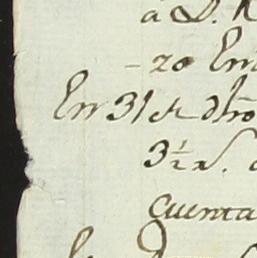 a D.
-20 En
En 31 de dho
3½ r.
cuenta